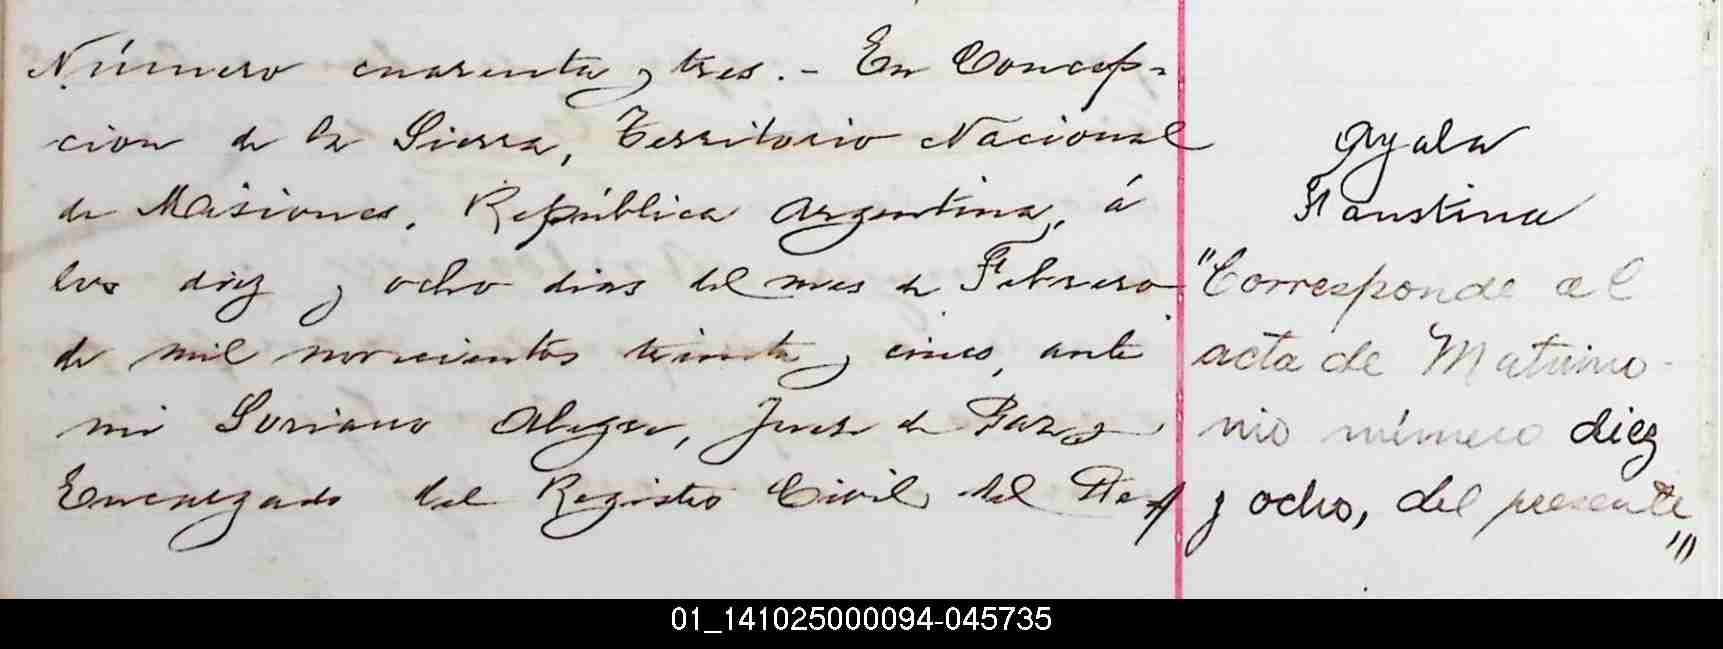 Número cuarenta y tres. - En Concep-
cion de la Sierra, Territorio Nacional
de Misiones, República Argentina, á
los diez y ocho dias del mes de Febrero
de mil novecientos treinta y cinco, ante
mi Soriano Alegre, Juez de Paz y
Encargado del Registro Civil del
Ayala
Faustina
"Corresponde al
acta de Matrimo-
nio número diez
y ocho, del presente
"
01_141025000094-045735